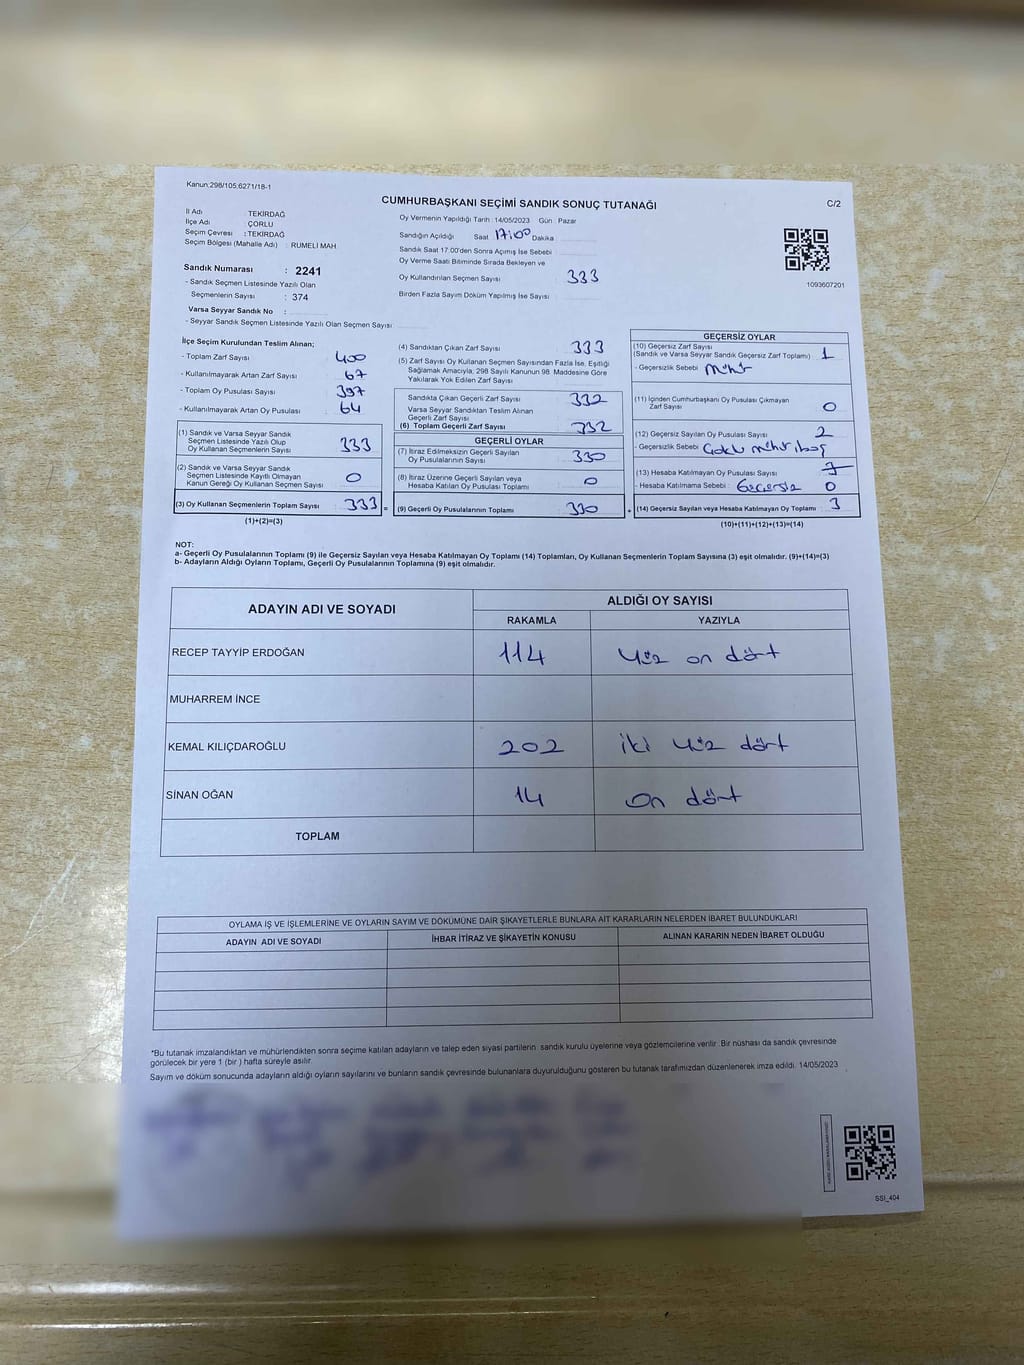 Kanun:298/105;6271/18-1
CUMHURBAŞKANI SEÇİMİ SANDIK SONUÇ TUTANAĞI
C/2
İl Adı : TEKİRDAĞ
İlçe Adı : ÇORLU
Seçim Çevresi : TEKİRDAĞ
Seçim Bölgesi (Mahalle Adı) : RUMELİ MAH
Sandık Numarası : 2241
- Sandık Seçmen Listesinde Yazılı Olan
Seçmenlerin Sayısı : 374
Varsa Seyyar Sandık No :
- Seyyar Sandık Seçmen Listesinde Yazılı Olan Seçmen Sayısı
Oy Vermenin Yapıldığı Tarih : 14/05/2023 Gün : Pazar
Sandığın Açıldığı Saat 17:00 Dakika
Sandık Saat 17:00'den Sonra Açımış İse Sebebi
Oy Verme Saati Bitiminde Sırada Bekleyen ve
Oy Kullandırılan Seçmen Sayısı 333
Birden Fazla Sayım Döküm Yapılmış İse Sayısı
1093607201
İlçe Seçim Kurulundan Teslim Alınan;
- Toplam Zarf Sayısı 400
- Kullanılmayarak Artan Zarf Sayısı 67
- Toplam Oy Pusulası Sayısı 397
- Kullanılmayarak Artan Oy Pusulası 64
(1) Sandık ve Varsa Seyyar Sandık
Seçmen Listesinde Yazılı Olup
Oy Kullanan Seçmenlerin Sayısı 333
(2) Sandık ve Varsa Seyyar Sandık
Seçmen Listesinde Kayıtlı Olmayan
Kanun Gereği Oy Kullanan Seçmen Sayısı 0
(3) Oy Kullanan Seçmenlerin Toplam Sayısı 333 =
(1)+(2)=(3)
(4) Sandıktan Çıkan Zarf Sayısı 333
(5) Zarf Sayısı Oy Kullanan Seçmen Sayısından Fazla İse, Eşitliği
Sağlamak Amacıyla, 298 Sayılı Kanunun 98. Maddesine Göre
Yakılarak Yok Edilen Zarf Sayısı
Sandıkta Çıkan Geçerli Zarf Sayısı 332
Varsa Seyyar Sandıktan Teslim Alınan
Geçerli Zarf Sayısı
(6) Toplam Geçerli Zarf Sayısı 332
GEÇERLİ OYLAR
(7) İtiraz Edilmeksizin Geçerli Sayılan
Oy Pusulalarının Sayısı 330
(8) İtiraz Üzerine Geçerli Sayılan veya
Hesaba Katılan Oy Pusulası Toplamı 0
(9) Geçerli Oy Pusulalarının Toplamı 330 +
GEÇERSİZ OYLAR
(10) Geçersiz Zarf Sayısı
(Sandık ve Varsa Seyyar Sandık Geçersiz Zarf Toplamı) 1
- Geçersizlik Sebebi mühür
(11) İçinden Cumhurbaşkanı Oy Pusulası Çıkmayan
Zarf Sayısı 0
(12) Geçersiz Sayılan Oy Pusulası Sayısı 2
- Geçersizlik Sebebi Çoklu mühür
(13) Hesaba Katılmayan Oy Pusulası Sayısı
- Hesaba Katılmama Sebebi Geçersiz 0
(14) Geçersiz Sayılan veya Hesaba Katılmayan Oy Toplamı 3
(10)+(11)+(12)+(13)=(14)
NOT:
a- Geçerli Oy Pusulalarının Toplamı (9) ile Geçersiz Sayılan veya Hesaba Katılmayan Oy Toplamı (14) Toplamları, Oy Kullanan Seçmenlerin Toplam Sayısına (3) eşit olmalıdır. (9)+(14)=(3)
b- Adayların Aldığı Oyların Toplamı, Geçerli Oy Pusulalarının Toplamına (9) eşit olmalıdır.
ADAYIN ADI VE SOYADI
ALDIĞI OY SAYISI
RAKAMLA YAZIYLA
RECEP TAYYİP ERDOĞAN 114 yüz on dört
MUHARREM İNCE
KEMAL KILIÇDAROĞLU 202 iki yüz dört
SİNAN OĞAN 14 on dört
TOPLAM
OYLAMA İŞ VE İŞLEMLERİNE VE OYLARIN SAYIM VE DÖKÜMÜNE DAİR ŞİKAYETLERLE BUNLARA AİT KARARLARIN NELERDEN İBARET BULUNDUKLARI
ADAYIN ADI VE SOYADI İHBAR İTİRAZ VE ŞİKAYETİN KONUSU ALINAN KARARIN NEDEN İBARET OLDUĞU
*Bu tutanak imzalandıktan ve mühürlendikten sonra seçime katılan adayların ve talep eden siyasi partilerin sandık kurulu üyelerine veya gözlemcilerine verilir. Bir nüshası da sandık çevresinde
görülecek bir yere 1 (bir ) hafta süreyle asılır.
Sayım ve döküm sonucunda adayların aldığı oyların sayılarını ve bunların sandık çevresinde bulunanlara duyurulduğunu gösteren bu tutanak tarafımızdan düzenlenerek imza edildi. 14/05/2023
SSİ_404